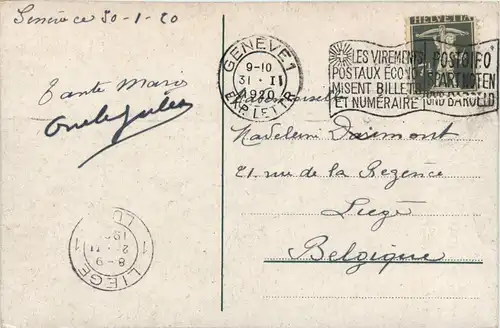 Genève 30-1-20
Tante Marg
Oncle Jules
GENÈVE 1
9-10
31·I
1920
EXP. LETTR.
HELVETIA
LES VIREMENTS
POSTAUX ÉCONO
MISENT BILLETS
ET NUMÉRAIRE
POSTGIRO
SPART NOTEN
UND BARGELD
Mademoiselle
Madeleine Daimont
21 rue de la Régence
Liège
Belgique
1 LIEGE 1
8-9